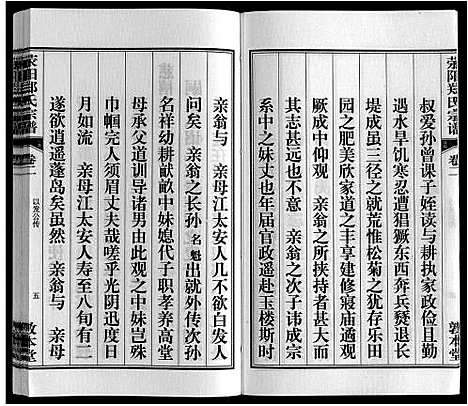 滎阳郑氏宗谱
卷二
敦本堂
叔爱孙曾课子姪读与耕执家政俭且勤
遇水旱饥寒忍遭猖獗东西奔兵燹退长
堤成虽三径之就荒惟松菊之犹存乐田
园之肥美欣家道之丰享建修寢庙适观
厥成中仰观 亲翁之所挟持者甚大而
其志甚远也不意 亲翁之次子讳成宗
系中之妹丈也年届官政遥赴玉楼斯时
亲翁与 亲母江太安人几不欲白发人
问矣 亲翁之长孙名魁出就外传次孙
名祥幼耕献畝中妹媳代子职孝养高堂
母承父道训导诸男由此观之中妹岂殊
巾帼完人须眉丈夫哉嗟乎光阴迅度日
月如流 亲母江太安人寿至八旬有二
遂欲逍遥蓬岛矣虽然 亲翁与 亲母
荥阳郑氏宗谱
卷二
以发公传
五
敦本堂